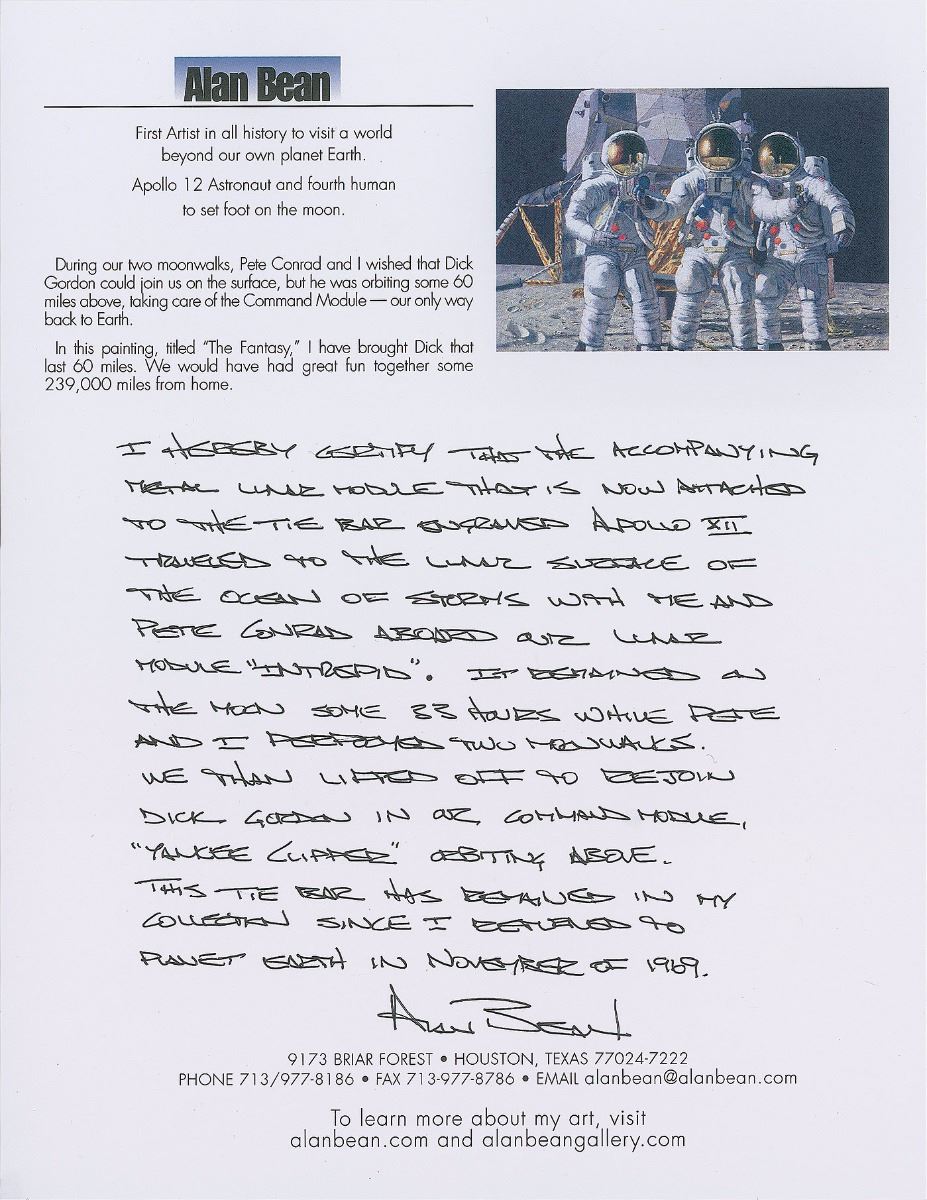 Alan Bean
First Artist in all history to visit a world
beyond our own planet Earth.
Apollo 12 Astronaut and fourth human
to set foot on the moon.
During our two moonwalks, Pete Conrad and I wished that Dick
Gordon could join us on the surface, but he was orbiting some 60
miles above, taking care of the Command Module — our only way
back to Earth.
In this painting, titled "The Fantasy," I have brought Dick that
last 60 miles. We would have had great fun together some
239,000 miles from home.
I HEREBY CERTIFY THAT THE ACCOMPANYING
METAL LUNAR MODULE THAT IS NOW ATTACHED
TO THE TIE BAR ENGRAVED APOLLO XII
TRAVELED TO THE LUNAR SURFACE OF
THE OCEAN OF STORMS WITH ME AND
PETE CONRAD ABOARD OUR LUNAR
MODULE "INTREPID". IT REMAINED ON
THE MOON SOME 33 HOURS WHILE PETE
AND I PERFORMED TWO MOONWALKS.
WE THAN LIFTED OFF TO REJOIN
DICK GORDON IN OUR COMMAND MODULE,
"YANKEE CLIPPER" ORBITING ABOVE.
THIS TIE BAR HAS REMAINED IN MY
COLLECTION SINCE I RETURNED TO
PLANET EARTH IN NOVEMBER OF 1969.
Alan Bean
9173 BRIAR FOREST • HOUSTON, TEXAS 77024-7222
PHONE 713/977-8186 • FAX 713-977-8786 • EMAIL alanbean@alanbean.com
To learn more about my art, visit
alanbean.com and alanbeangallery.com